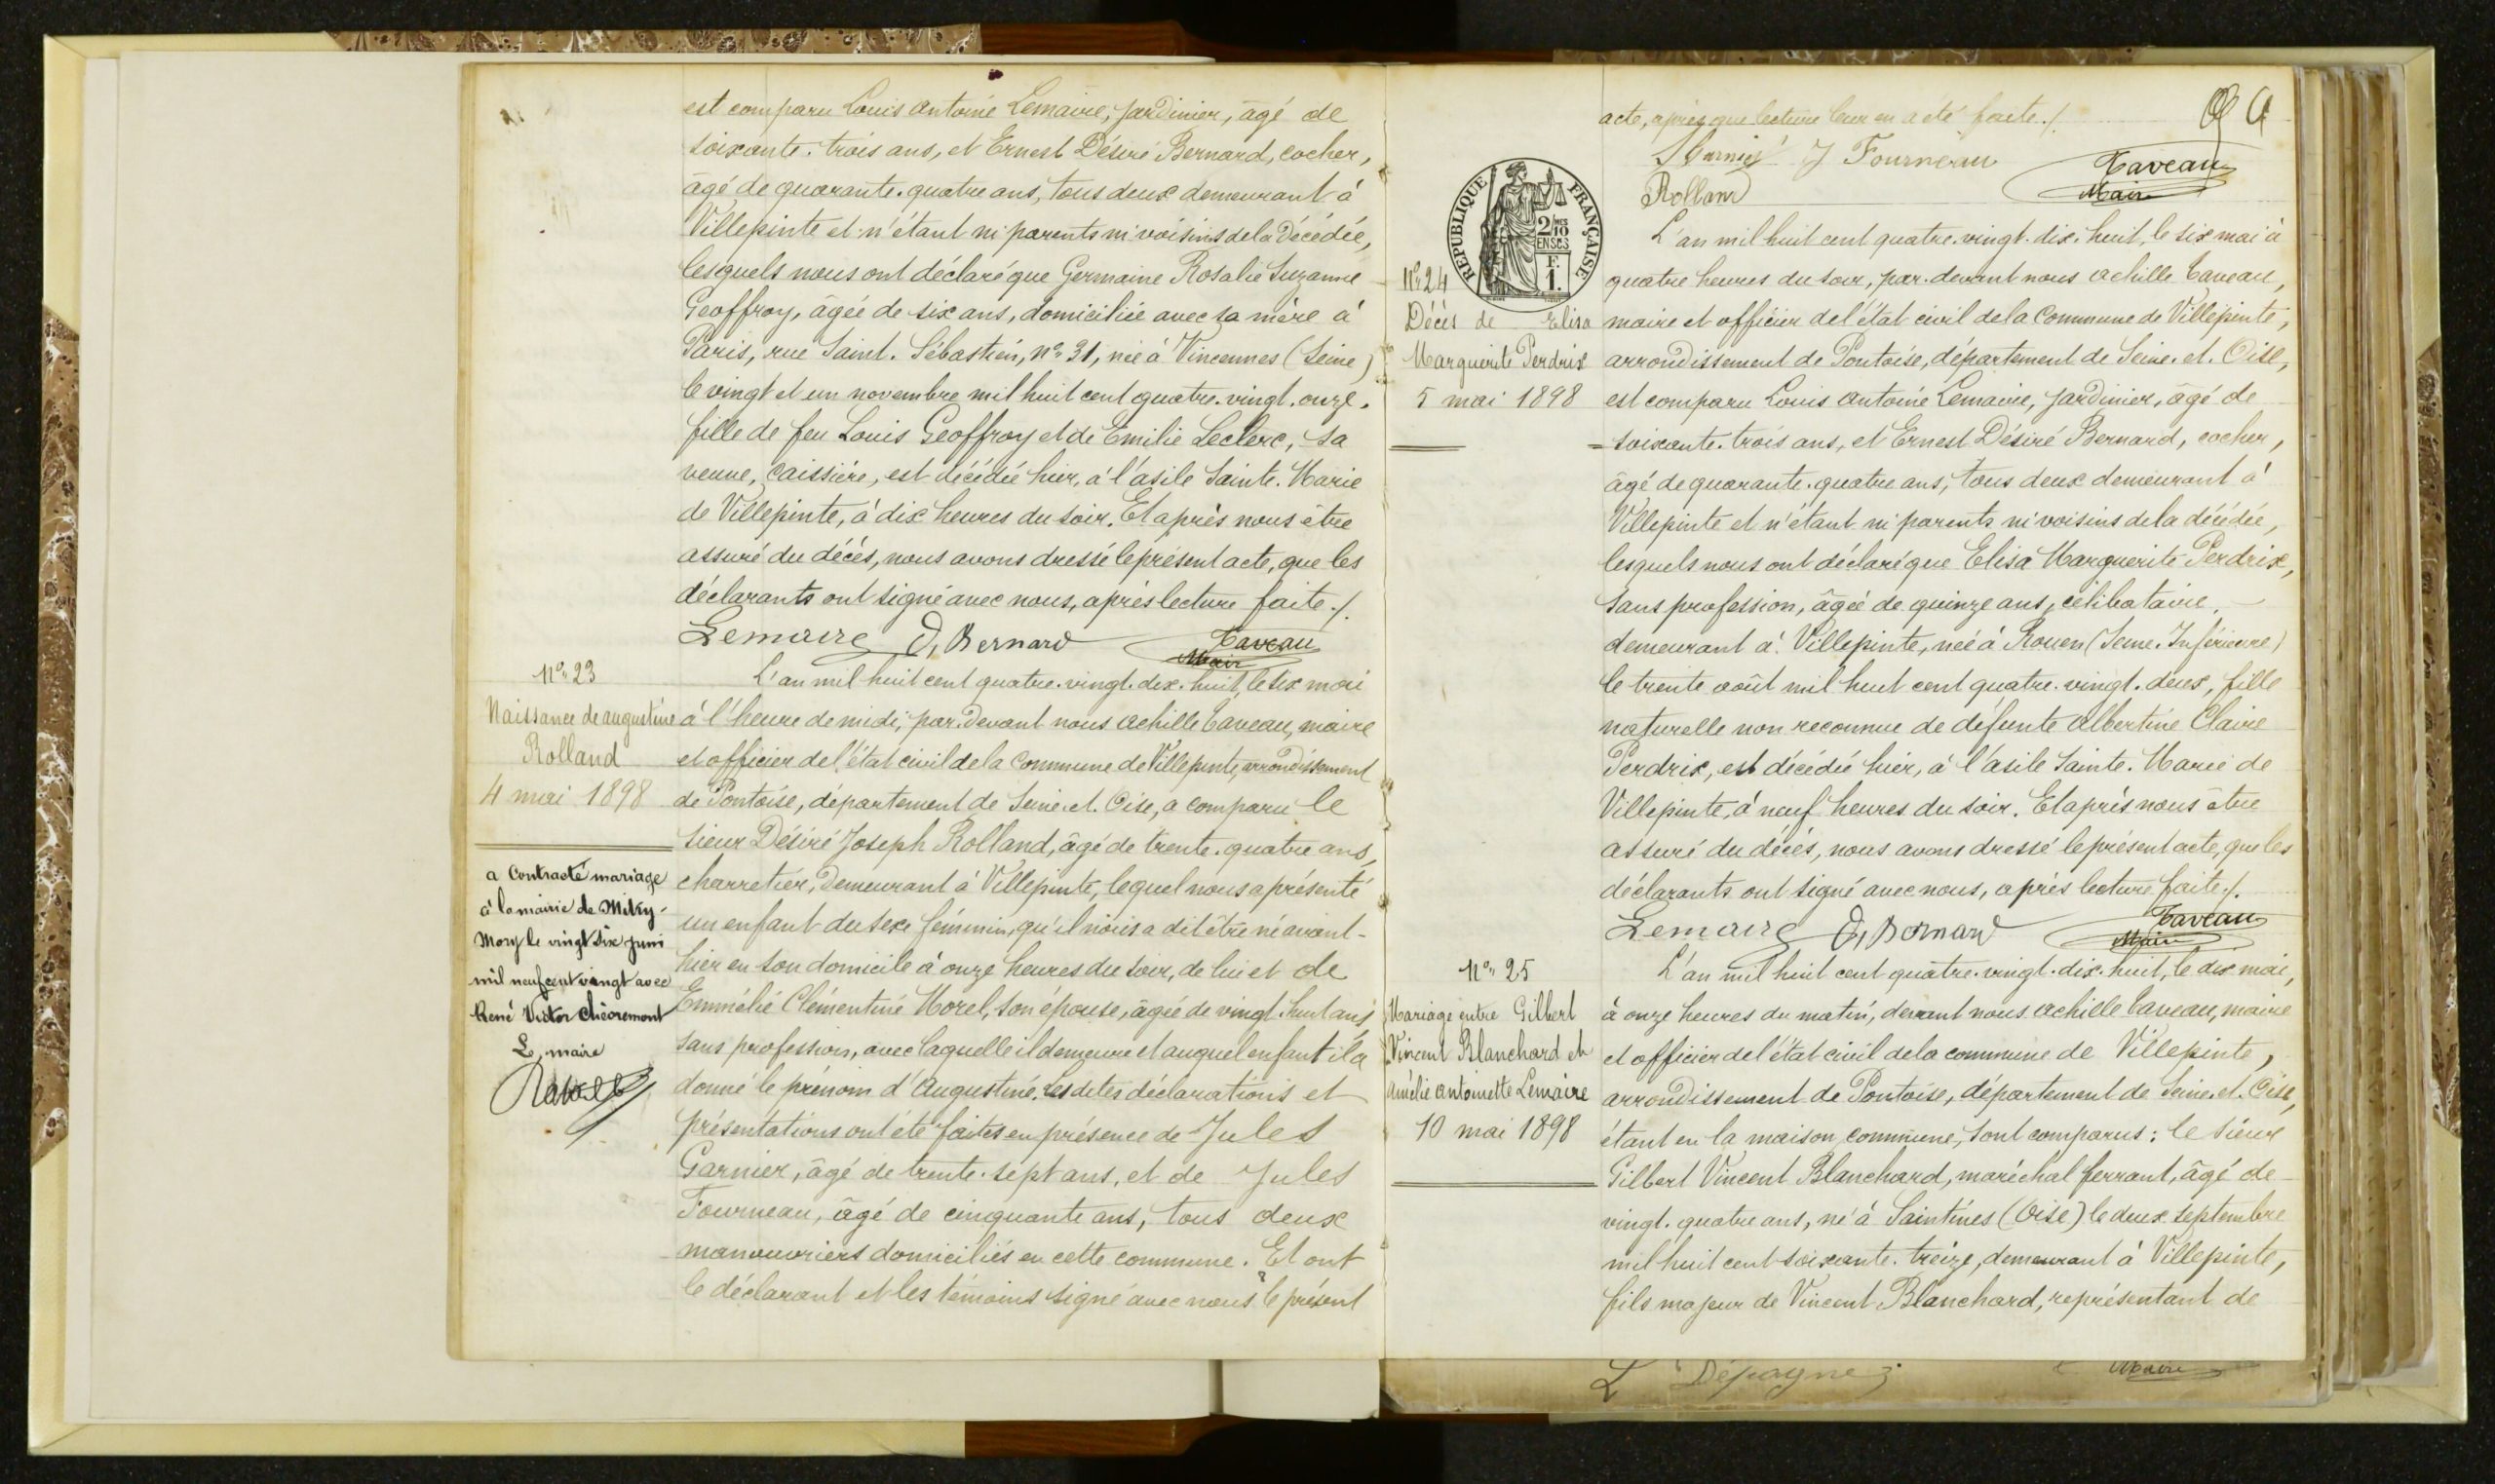 est comparu Louis Antoine Lemaire, jardinier, âgé de
soixante-trois ans, et Ernest Désiré Bernard, cocher,
âgé de quarante-quatre ans, tous deux demeurant à
Villepinte et n'étant ni parents ni voisins de la décédée,
lesquels nous ont déclaré que Germaine Rosalie Suzanne
Geoffroy, âgée de six ans, domiciliée avec sa mère à
Paris, rue Saint-Sébastien, n° 31, née à Vincennes (Seine)
le vingt et un novembre mil huit cent quatre-vingt-onze.
fille de feu Louis Geoffroy et de Emilie Leclerc, sa
veuve, caissière, est décédée hier, à l'asile Sainte-Marie
de Villepinte, à dix heures du soir. Et après nous être
assuré du décès, nous avons dressé le présent acte, que les
déclarants ont signé avec nous, après lecture faite./.
Lemaire D, Bernard Taveau
Maire
N° 23
Naissance de Augustine
Rolland
4 mai 1898
a Contracté mariage
à la mairie de Mitry-
Mory le vingt six juin
mil neuf cent vingt avec
René Victor
Le maire
L'an mil huit cent quatre-vingt-dix-huit, le six mai
à l'heure de midi, par-devant nous Achille Taveau, maire
et officier de l'état civil de la Commune de Villepinte, arrondissement
de Pontoise, département de Seine-et-Oise, a comparu le
sieur Désiré Joseph Rolland, âgé de trente-quatre ans,
charretier, demeurant à Villepinte, lequel nous a présenté
un enfant du sexe féminin, qu'il nous a dit être né avant-
hier en son domicile à onze heures du soir, de lui et de
Emmélie Clémentine Morel, son épouse, âgée de vingt-huit ans,
sans profession, avec laquelle il demeure et auquel enfant il a
donné le prénom d'Augustine. Lesdites déclarations et
présentations ont été faites en présence de Jules
Garnier, âgé de trente-sept ans, et de Jules
Fourneau, âgé de cinquante ans, tous deux
manouvriers domiciliés en cette commune. Et ont
le déclarant et les témoins signé avec nous le présent
acte, après que lecture leur en a été faite./.
Garnier J Fourneau Taveau
Rolland Maire
RÉPUBLIQUE FRANÇAISE
2/10
EN SUS
F.
1.
N° 24
Décès de Elisa
Marguerite Perdrix
5 mai 1898
L'an mil huit cent quatre-vingt-dix-huit, le six mai à
quatre heures du soir, par-devant nous Achille Taveau,
maire et officier de l'état civil de la Commune de Villepinte,
arrondissement de Pontoise, département de Seine-et-Oise,
est comparu Louis Antoine Lemaire, jardinier, âgé de
soixante-trois ans, et Ernest Désiré Bernard, cocher,
âgé de quarante-quatre ans, tous deux demeurant à
Villepinte et n'étant ni parents ni voisins de la décédée,
lesquels nous ont déclaré que Elisa Marguerite Perdrix,
sans profession, âgée de quinze ans, célibataire,
demeurant à Villepinte, née à Rouen (Seine-Inférieure)
le trente août mil huit cent quatre-vingt-deux, fille
naturelle non reconnue de défunte Albertine Claire
Perdrix, est décédée hier, à l'asile Sainte-Marie de
Villepinte, à neuf heures du soir. Et après nous être
assuré du décès, nous avons dressé le présent acte, que les
déclarants ont signé avec nous, après lecture faite./.
Lemaire D, Bernard Taveau
Maire
N° 25
Mariage entre Gilbert
Vincent Blanchard et
Amélie Antoinette Lemaire
10 mai 1898
L'an mil huit cent quatre-vingt-dix-huit, le dix mai,
à onze heures du matin, devant nous Achille Taveau, maire
et officier de l'état civil de la commune de Villepinte,
arrondissement de Pontoise, département de Seine-et-Oise,
étant en la maison commune, sont comparus : le sieur
Gilbert Vincent Blanchard, maréchal ferrant, âgé de
vingt-quatre ans, né à Saintines (Oise) le deux septembre
mil huit cent soixante-treize, demeurant à Villepinte,
fils majeur de Vincent Blanchard, représentant de
L Dépagne Maire